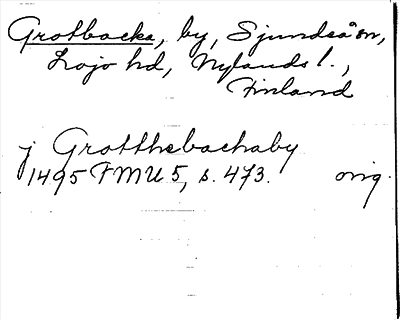 Grotbacka, by, Sjundeå sn,
Lojo hd, Nylands l.,
Finland
j Grotthebachaby
1495 FMU 5, s. 473. orig.